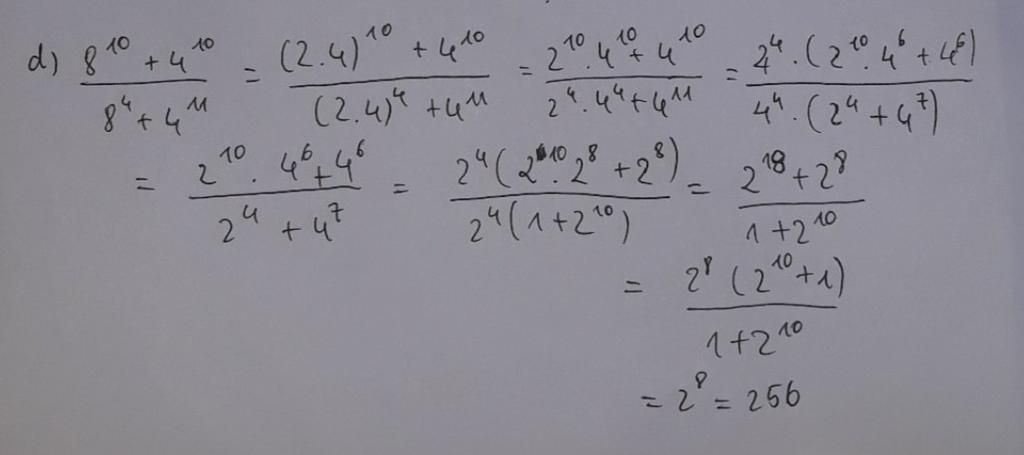 d) (8^10 + 4^10)/(8^4 + 4^11) = ((2.4)^10 + 4^10)/((2.4)^4 + 4^11) = (2^10 . 4^10 + 4^10)/(2^4 . 4^4 + 4^11) = (4^4 . (2^10 . 4^6 + 4^6))/(4^4 . (2^4 + 4^7))
= (2^10 . 4^6 + 4^6)/(2^4 + 4^7) = (2^4 (2^10 . 2^8 + 2^8))/(2^4 (1 + 2^10)) = (2^18 + 2^8)/(1 + 2^10)
= (2^8 (2^10 + 1))/(1 + 2^10)
= 2^8 = 256